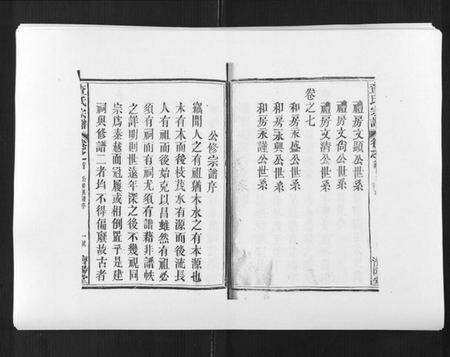 禮房文顯公世系
禮房文尙公世系
禮房文淸公世系
卷之七
和房永盛公世系
和房永興公世系
和房永謹公世系
公修宗譜序
竊聞人之有祖猶木水之有本源也
木有本而後枝茂水有源而後流長
人有祖而後始克以昌雖然有祖必
須有祠而有祠尤須有譜藉非譜帙
之詳明則世遠年深之後不幾視同
宗爲秦越而冠履或相倒置乎是建
祠與修譜二者均不得偏廢故古者
氏宗譜
卷之